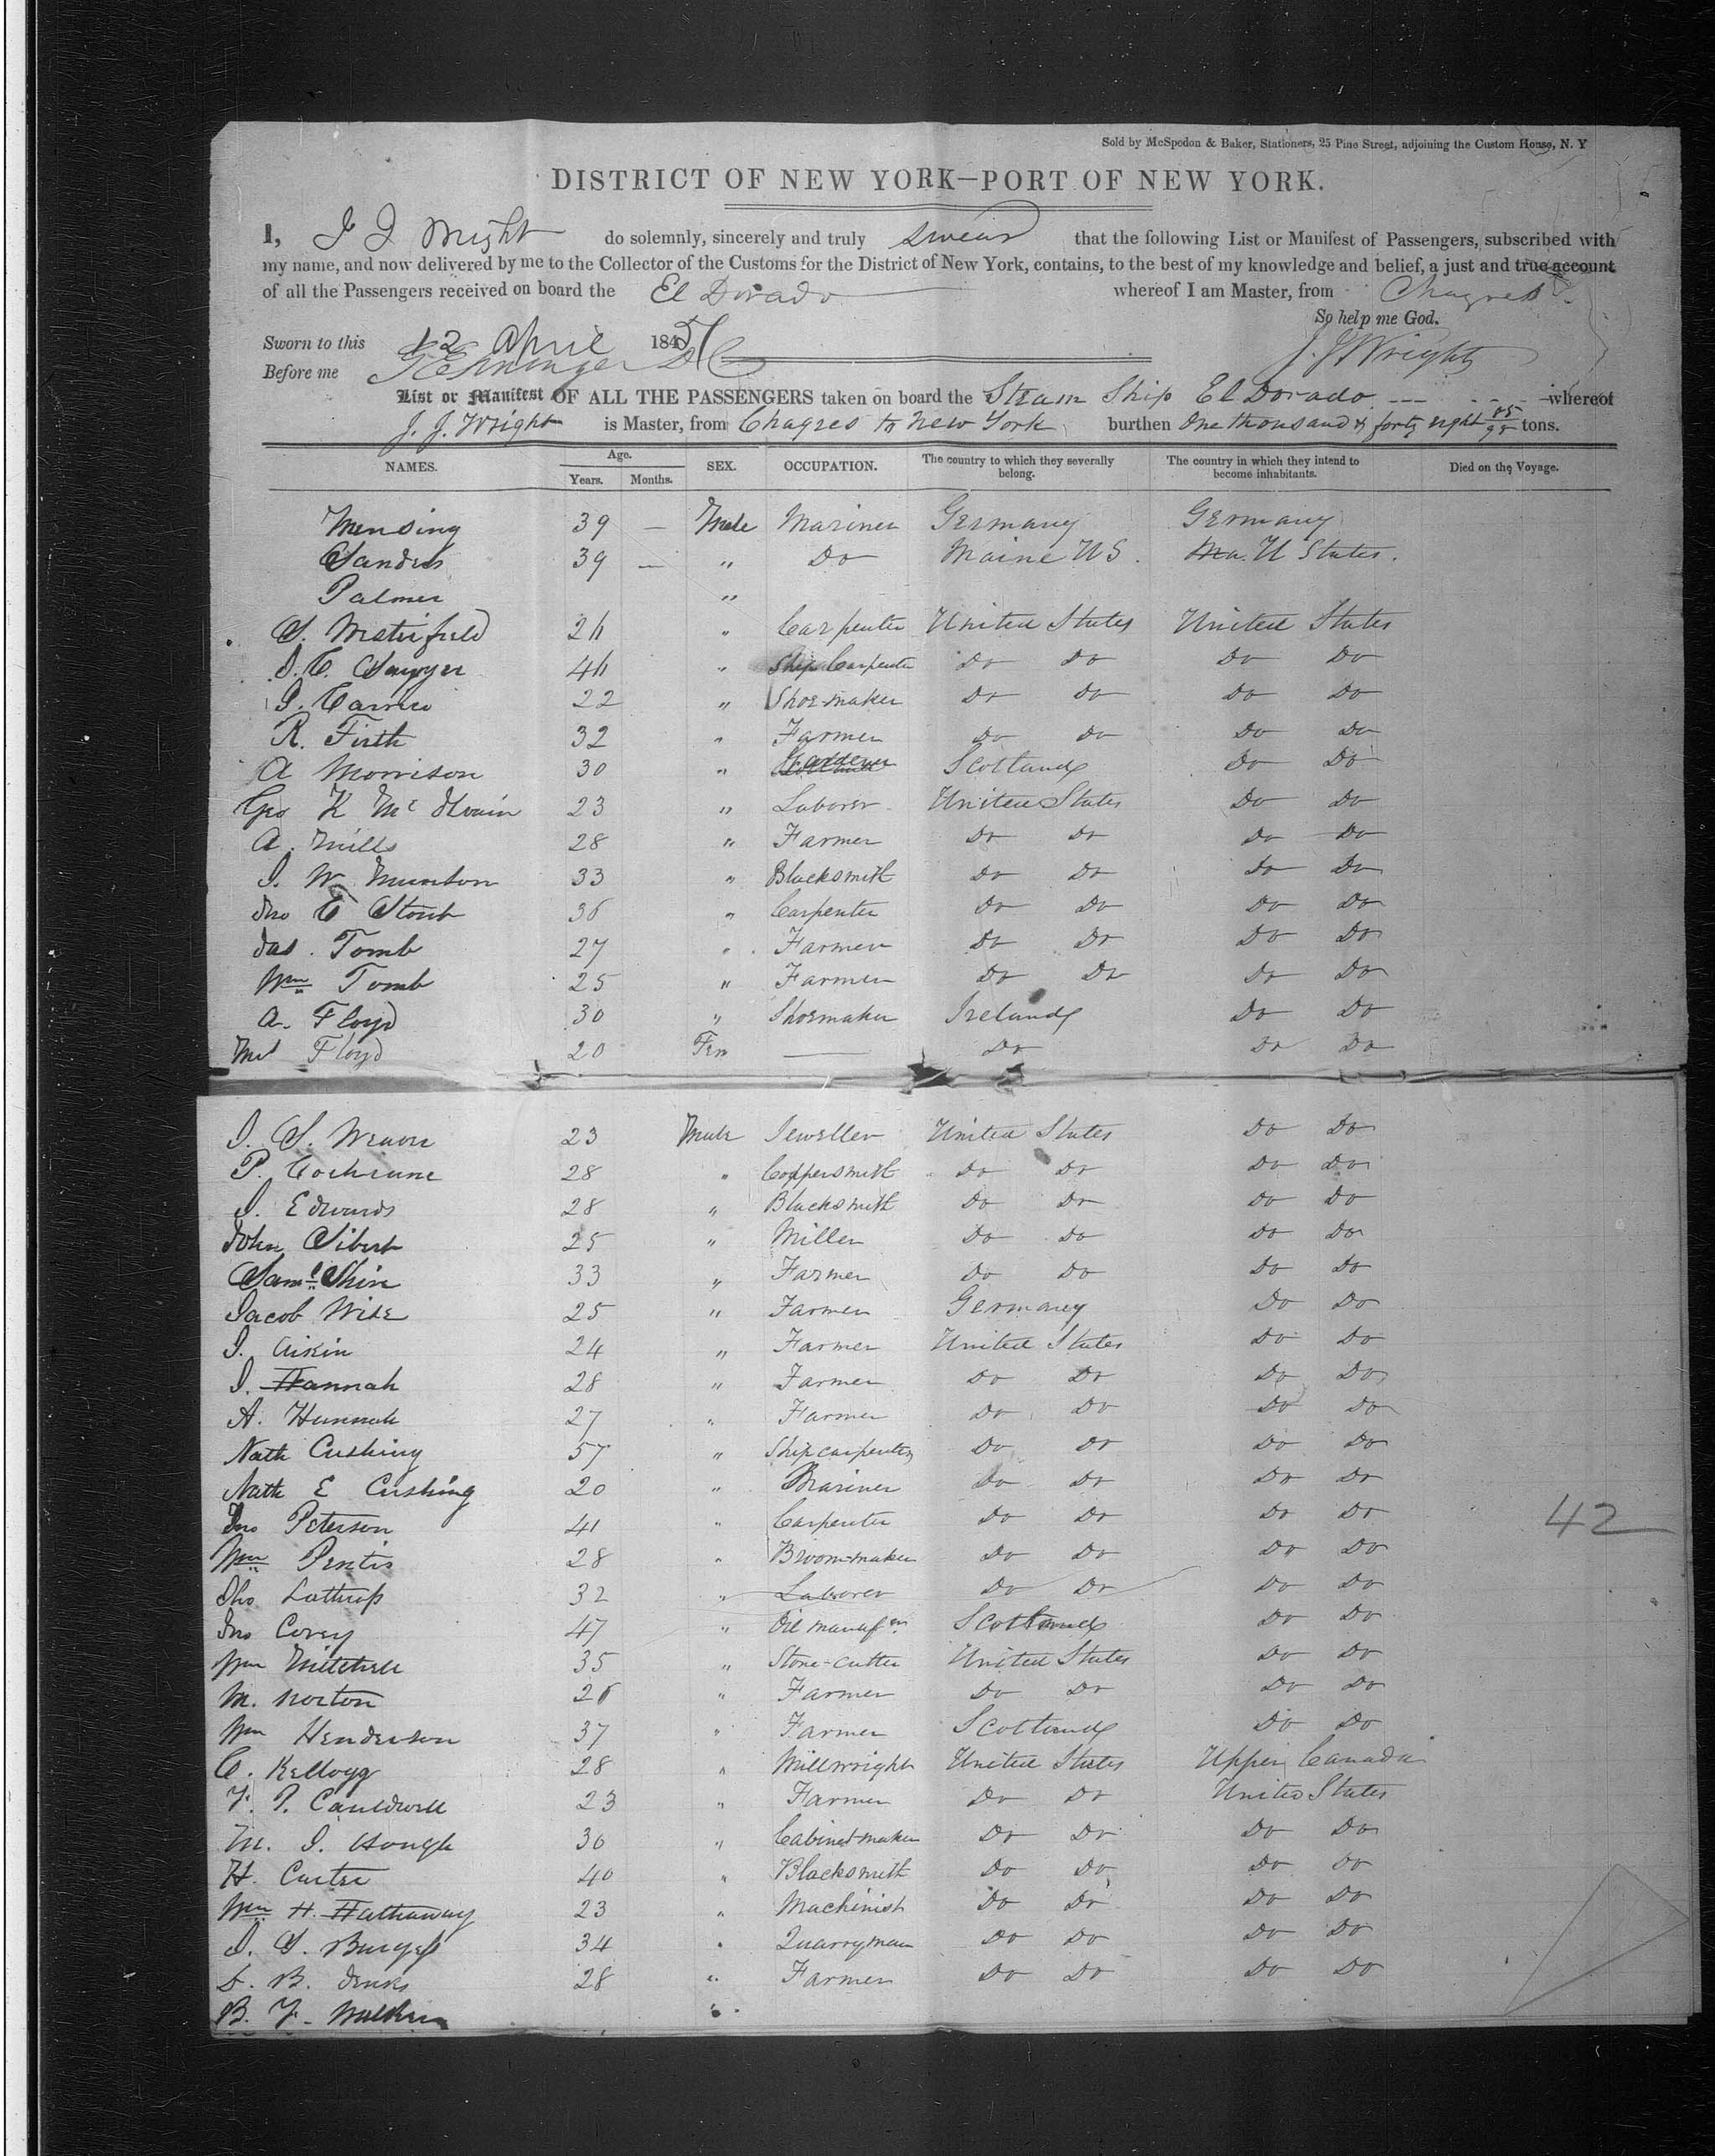 Sold by McSpedon & Baker, Stationers, 25 Pine Street, adjoining the Custom House, N. Y
DISTRICT OF NEW YORK—PORT OF NEW YORK.
I, J J Wright do solemnly, sincerely and truly swear that the following List or Manifest of Passengers, subscribed with
my name, and now delivered by me to the Collector of the Customs for the District of New York, contains, to the best of my knowledge and belief, a just and true account
of all the Passengers received on board the El Dorado whereof I am Master, from Chagres
So help me God.
Sworn to this 12 April 1851
J. J. Wright
Before me
List or Manifest OF ALL THE PASSENGERS taken on board the Steam Ship El Dorado whereof
J. J. Wright is Master, from Chagres to New York burthen One thousand & forty eight 85/95 tons.
NAMES. Age. Years. Months. SEX. OCCUPATION. The country to which they severally belong. The country in which they intend to become inhabitants. Died on the Voyage.
Mensing 39 — Male Mariner Germany Germany
Sanders 39 — " Do Maine U S. U States.
Palmer "
S. Waterfield " Carpenter United States United States
J. C. Sawyer " Ship Carpenter Do Do Do Do
22 " Shoe-maker Do Do Do Do
R. Firth 32 " Farmer Do Do Do Do
A Morrison 30 " Gardener Scotland Do Do
Geo K 23 " Laborer United States Do Do
A. Mills 28 " Farmer Do Do Do Do
J. W. Munson 33 " Blacksmith Do Do Do Do
Jno E Stout 36 " Carpenter Do Do Do Do
Jas. Tomb 27 " Farmer Do Do Do Do
Wm Tomb 25 " Farmer Do Do Do Do
A. Floyd 30 " Shoemaker Ireland Do Do
Mrs Floyd 20 Fem — Do Do Do
J. S. 23 Male Jeweller United States Do Do
P. Cochrane 28 " Coppersmith Do Do Do Do
J. Edwards 28 " Blacksmith Do Do Do Do
John Sibert 25 " Miller Do Do Do Do
Saml Shin 33 " Farmer Do Do Do Do
Jacob Wise 25 " Farmer Germany Do Do
J. Aikin 24 " Farmer United States Do Do
J. Hannah 28 " Farmer Do Do Do Do
A. Hannah 27 " Farmer Do Do Do Do
Nath Cushing 57 " Ship carpenter Do Do Do Do
Nath E Cushing 20 " Mariner Do Do Do Do
Jno Peterson 41 " Carpenter Do Do Do Do
42
Wm Pentis 28 " Broom-maker Do Do Do Do
Tho Lathrop 32 " Laborer Do Do Do Do
Jno Corey 47 " Oil manufr Scotland Do Do
Wm Mitchell 35 " Stone-cutter United States Do Do
M. Norton 26 " Farmer Do Do Do Do
Wm Henderson 37 " Farmer Scotland Do Do
C. Kellogg 28 " Millwright United States Upper Canada
F. P. Cauldwell 23 " Farmer Do Do United States
M. J. Hough 30 " Cabinet-maker Do Do Do Do
H. Carter 40 " Blacksmith Do Do Do Do
Wm H. Hathaway 23 " Machinist Do Do Do Do
J. S. Burgess 34 " Quarryman Do Do Do Do
L. B. Jenks 28 " Farmer Do Do Do Do
B. F. "